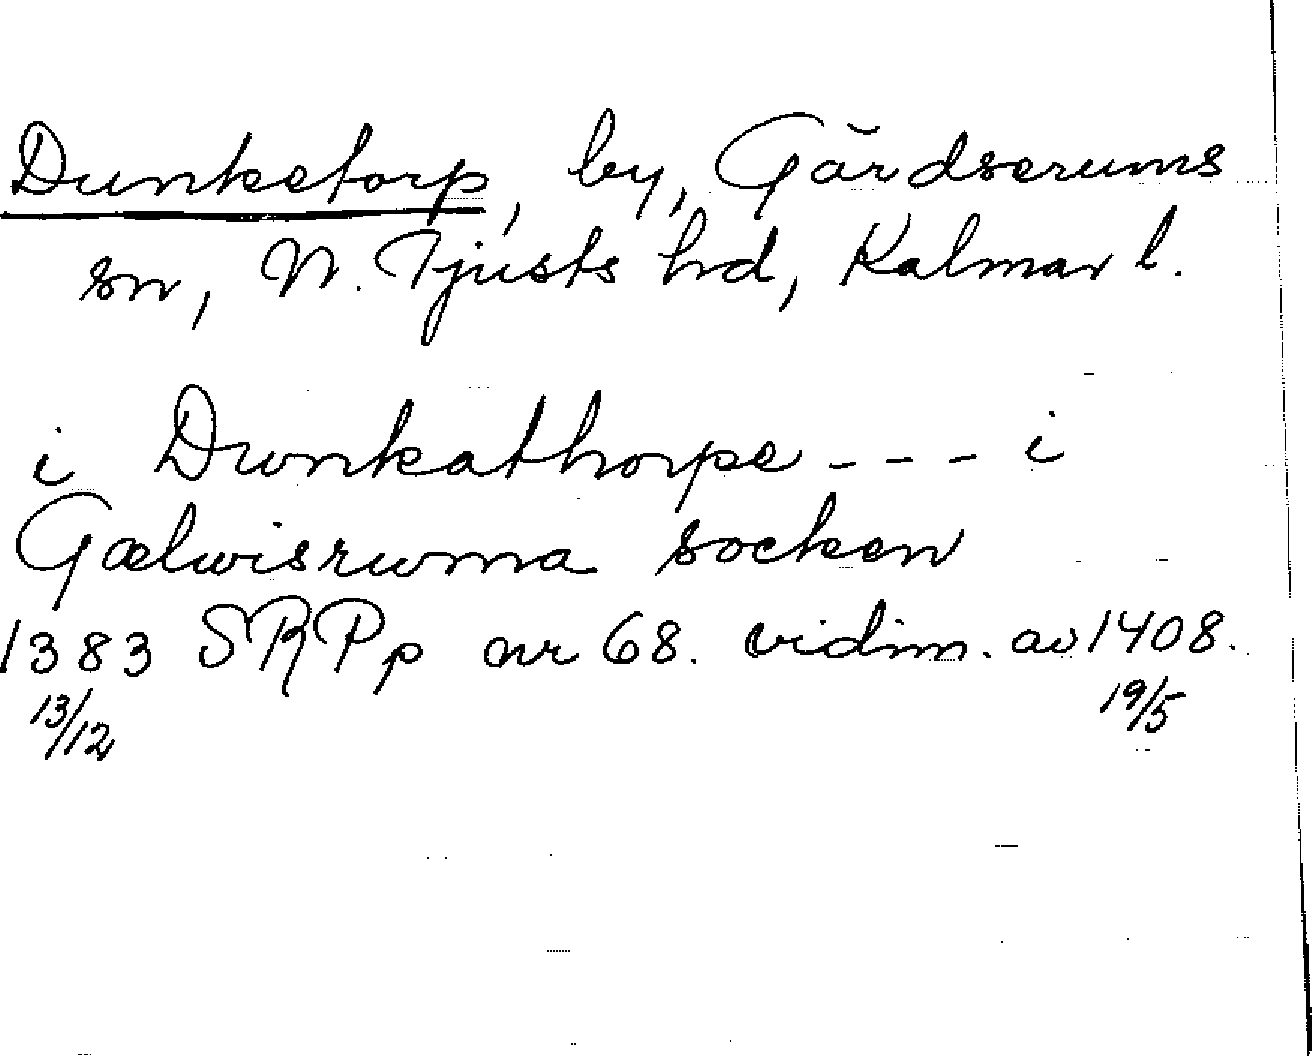 Dunketorp, by, Gärdserums
sn, N. Tjusts hd, Kalmar l.
i Dwnkathorpe - - - i
Gælwisrwma socken
1383 SRPp nr 68. vidim. av 1408.
13/12 19/5